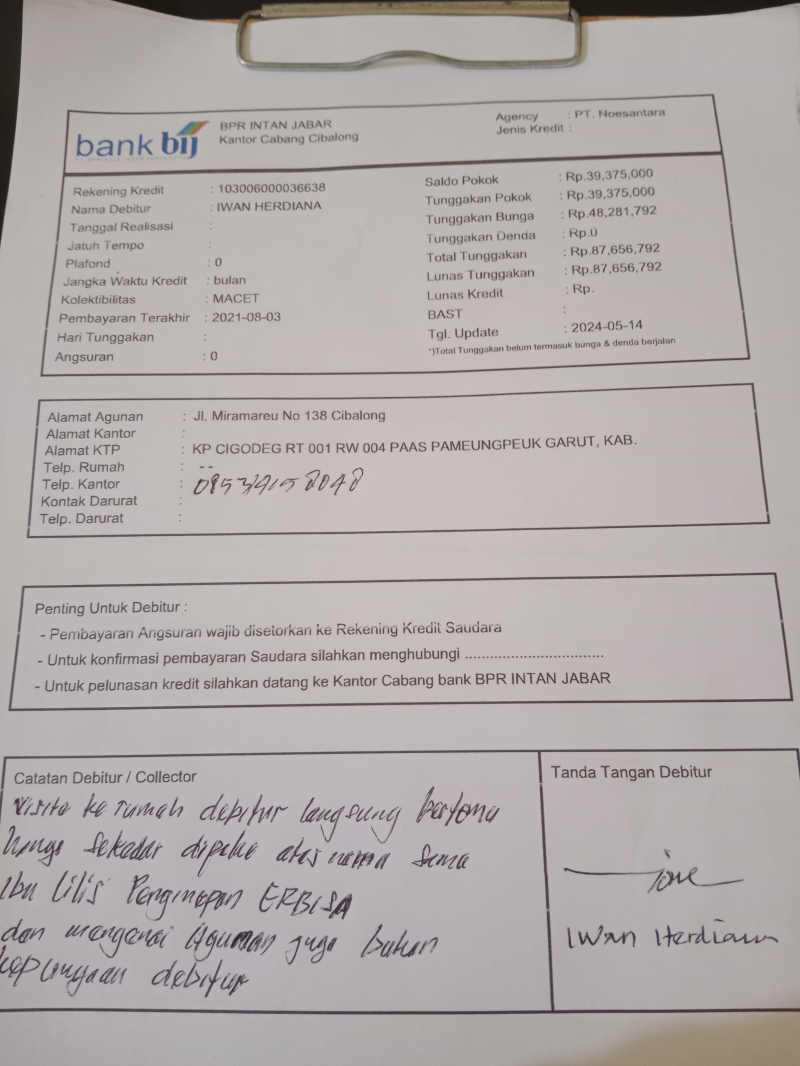 bank bij
BPR INTAN JABAR
Kantor Cabang Cibalong
Agency : PT. Noesantara
Jenis Kredit :
Rekening Kredit : 103006000036638
Nama Debitur : IWAN HERDIANA
Tanggal Realisasi :
Jatuh Tempo :
Plafond : 0
Jangka Waktu Kredit : bulan
Kolektibilitas : MACET
Pembayaran Terakhir : 2021-08-03
Hari Tunggakan :
Angsuran : 0
Saldo Pokok : Rp.39,375,000
Tunggakan Pokok : Rp.39,375,000
Tunggakan Bunga : Rp.48,281,792
Tunggakan Denda : Rp.0
Total Tunggakan : Rp.87,656,792
Lunas Tunggakan : Rp.87,656,792
Lunas Kredit : Rp.
BAST :
Tgl. Update : 2024-05-14
*)Total Tunggakan belum termasuk bunga & denda berjalan
Alamat Agunan : Jl. Miramareu No 138 Cibalong
Alamat Kantor :
Alamat KTP : KP CIGODEG RT 001 RW 004 PAAS PAMEUNGPEUK GARUT, KAB.
Telp. Rumah : --
Telp. Kantor :
Kontak Darurat :
Telp. Darurat :
Penting Untuk Debitur :
- Pembayaran Angsuran wajib disetorkan ke Rekening Kredit Saudara
- Untuk konfirmasi pembayaran Saudara silahkan menghubungi ..................................
- Untuk pelunasan kredit silahkan datang ke Kantor Cabang bank BPR INTAN JABAR
Catatan Debitur / Collector
visite ke rumah debitur langsung bertemu
hanya sekedar dipake atas nama sama
ibu lilis Penginapan ERBISA
dan mengenai Agunan juga bukan
kepunyaan debitur
Tanda Tangan Debitur
Iwan Herdiana